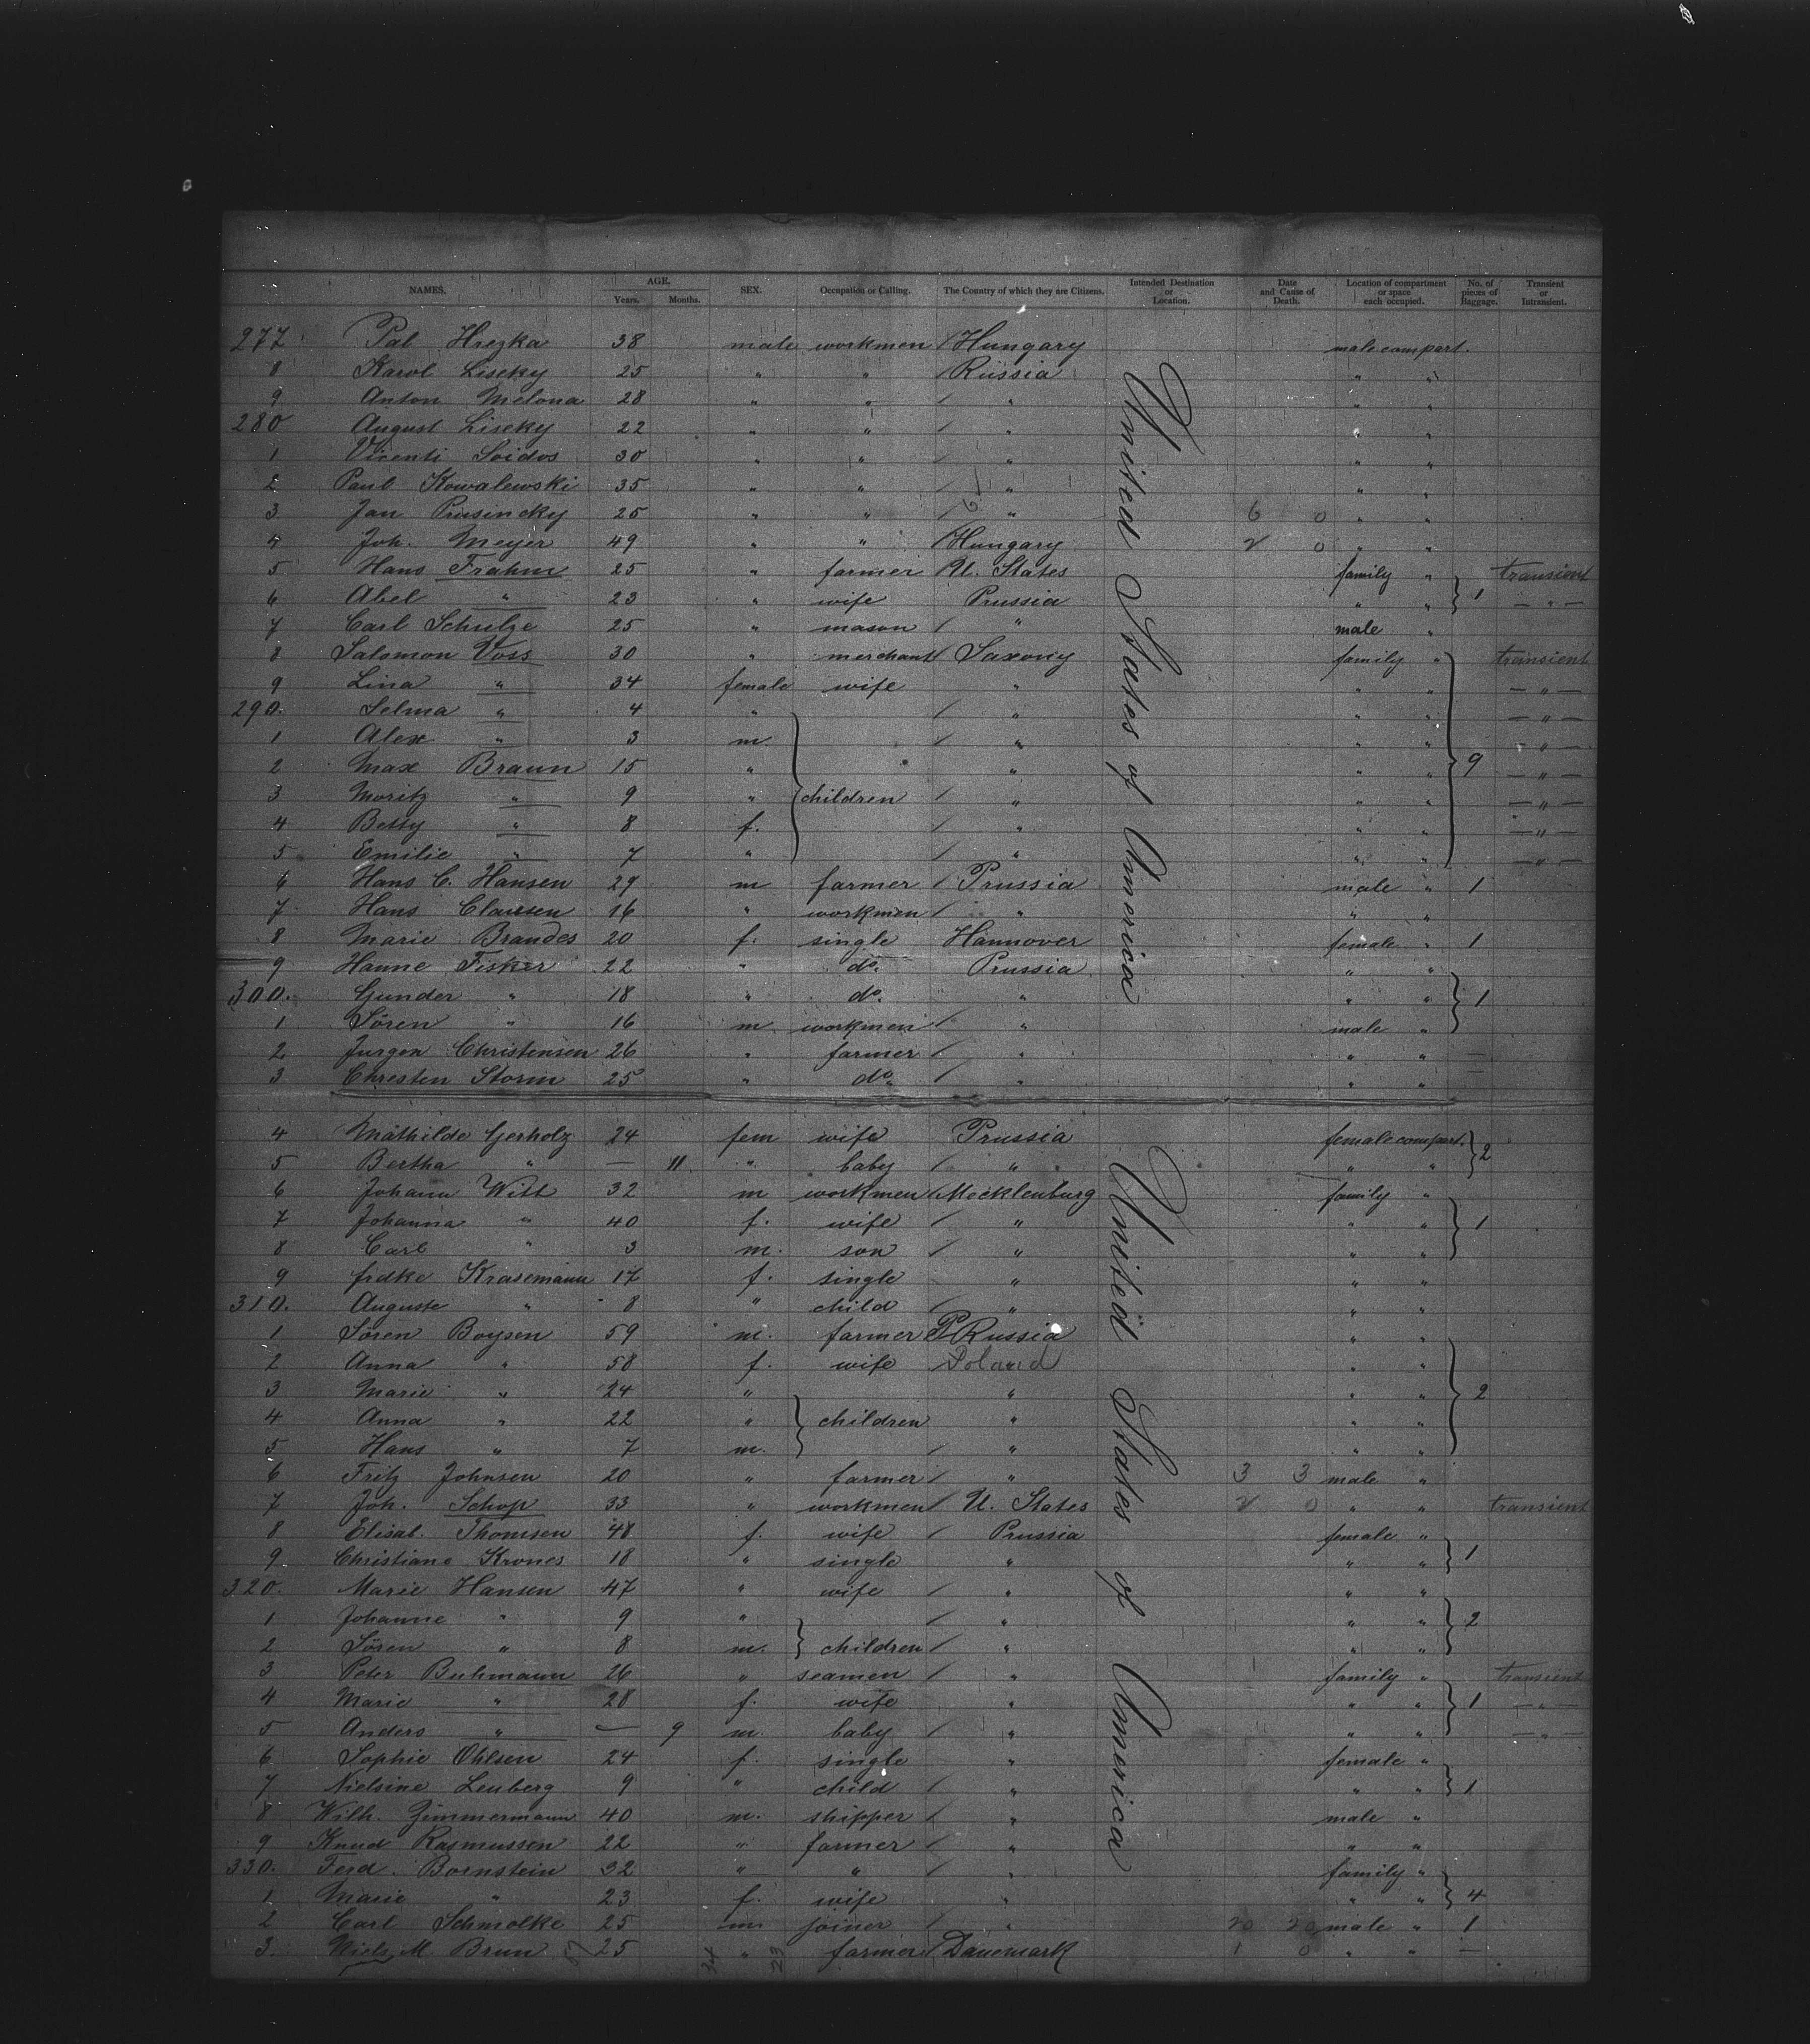 NAMES. AGE. Years. Months. SEX. Occupation or Calling. The Country of which they are Citizens. Intended Destination or Location. Date and Cause of Death. Location of compartment or space each occupied. No. of pieces of Baggage. Transient or Intransient.
277 Pal Hrezka 38 male workmen Hungary male compart.
8 Karol Liseky 25 " " Russia " "
9 Anton Melona 28 " " " " "
280 August Liseky 22 " " " " "
1 Vicenti Soidos 30 " " " " "
2 Paul Kowalewski 35 " " " " "
3 Jan Prusincky 25 " " " 6 0 " "
4 Joh. Meyer 49 " " Hungary 2 0 " "
5 Hans Frahm 25 " farmer U. States family " transient
6 Abel " 23 " wife Prussia " " 1 — " —
7 Carl Schulze 25 " mason " male "
8 Salomon Voss 30 " merchant Saxony family " transient
9 Lina " 34 female wife " " " — " —
290. Selma " 4 " " " " — " —
1 Alex " 3 m. " " " — " —
2 Max Braun 15 " " " " 9 — " —
3 Moritz " 9 " children " " " — " —
4 Betty " 8 f. " " " — " —
5 Emilie " 7 " " " " — " —
6 Hans C. Hansen 29 m farmer Prussia male " 1
7 Hans Claussen 16 " workmen " " "
8 Marie Brandes 20 f. single Hannover female " 1
9 Hanne Fisker 22 " do. Prussia " "
300. Gunder " 18 " do. " " " 1
1 Sören " 16 m workmen " male "
2 Jurgen Christensen 26 " farmer " " " —
3 Chresten Storm 25 " do. " " " —
United States of America
4 Mathilde Gerholz 24 fem wife Prussia female compart. 2
5 Bertha " — 11 " baby " " "
6 Johann Witt 32 m workmen Mecklenburg family "
7 Johanna " 40 f. wife " " " 1
8 Carl " 3 m. son " " "
9 frdke Krasemann 17 f. single " " "
310. Auguste " 8 " child " " "
1 Sören Boysen 59 m. farmer PRussia " "
2 Anna " 58 f. wife Poland " "
3 Marie " 24 " " " " 2
4 Anna " 22 " children " " "
5 Hans " 7 m. " " "
6 Fritz Johnsen 20 " farmer " 3 3 male "
7 Joh. Schop 33 " workmen U. States 2 0 " " transient
8 Elisab. Thomsen 48 f. wife Prussia female "
9 Christiane Krones 18 " single " " " 1
320. Marie Hansen 47 " wife " " "
1 Johanne " 9 " " " " 2
2 Sören " 8 m. children " " "
3 Peter Buhmann 26 " seamen " family " transient
4 Marie " 28 f. wife " " " 1 — " —
5 Anders " — 9 m. baby " " " — " —
6 Sophie Ohlsen 24 f. single " female "
7 Nielsine Leuberg 9 " child " " " 1
8 Wilh. Zimmermann 40 m. shipper " male "
9 Knud Rasmussen 22 " farmer " " "
330. Ferd. Bornstein 32 " " " family "
1 Marie " 23 f. wife " " " 4
2 Carl Schmolke 25 m joiner " 20 20 male " 1
3. Niels M Brun 25 " farmer Danemark 1 0 " " —
United States of America